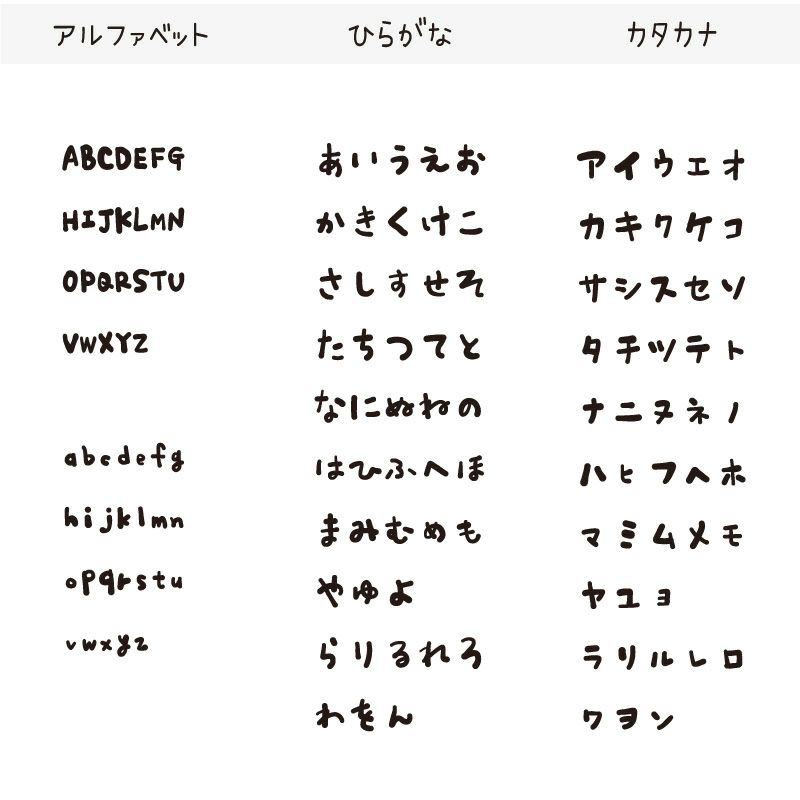 アルファベット
ABCDEFG
HIJKLMN
OPQRSTU
VWXYZ
abcdefg
hijklmn
opqrstu
vwxyz
ひらがな
あいうえお
かきくけこ
さしすせそ
たちつてと
なにぬねの
はひふへほ
まみむめも
やゆよ
らりるれろ
わをん
カタカナ
アイウエオ
カキクケコ
サシスセソ
タチツテト
ナニヌネノ
ハヒフヘホ
マミムメモ
ヤユヨ
ラリルレロ
ワヲン